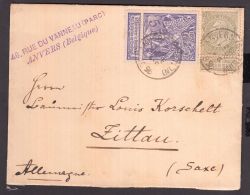 46, RUE DU VANNEAU (PARC)
ANVERS (Belgique)
ANVERS
Herrn
Louis Korschelt
Zittau
(Saxe)
Allemagne